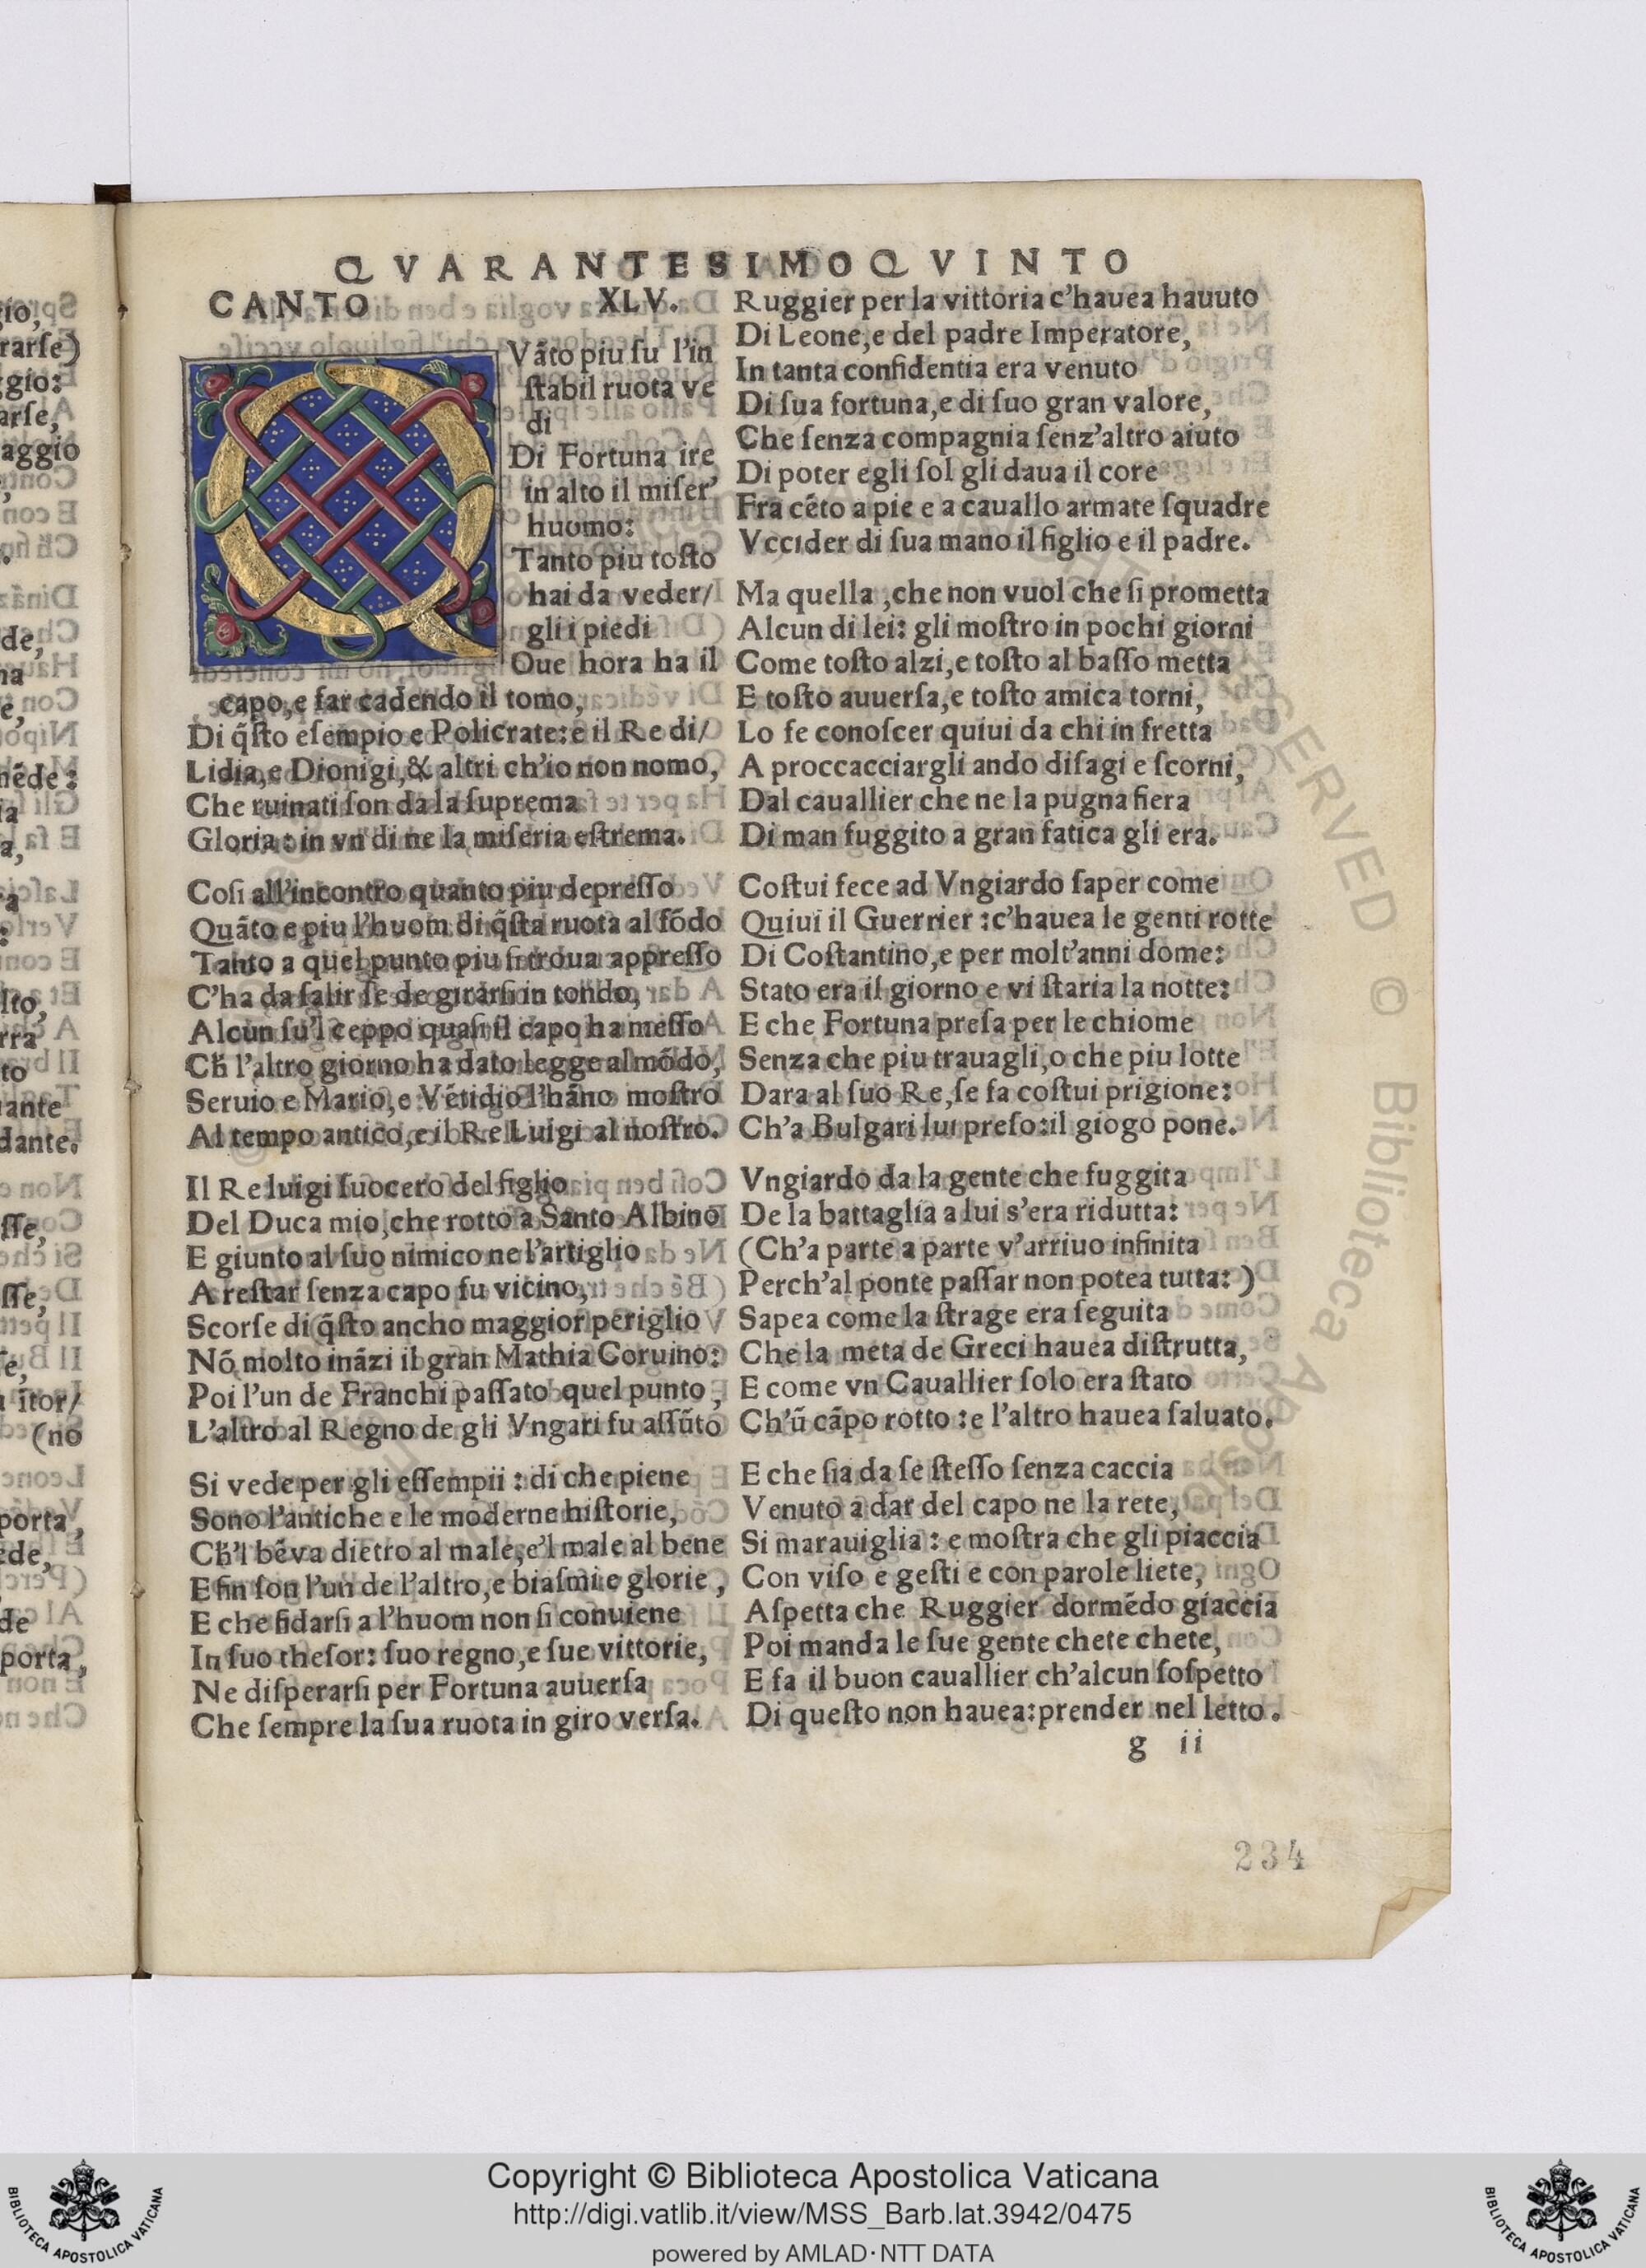 QVARANTESIMOQVINTO
CANTO XLV.
QVãto piu ſu l'in
ſtabil ruota ve
di
Di Fortuna ire
in alto il miſer'
huomo:
Tanto piu toſto
hai da veder/
gli i piedi
Oue hora ha il
capo, e far cadendo il tomo,
Di q̃ſto eſempio e Policrate: e il Re di/
Lidia, e Dionigi, & altri ch'io non nomo,
Che ruinati ſon da la ſuprema
Gloria: in vn di ne la miſeria eſtrema.
Coſi all'incontro quanto piu depreſſo
Quãto e piu l'huom di q̃ſta ruota al fõdo
Tanto a quel punto piu ſi troua appreſſo
C'ha da ſalir ſe de girarſi in tondo,
Alcun ſu'l ceppo quaſi il capo ha meſſo
Ch̃ l'altro giorno ha dato legge al mõdo,
Seruio e Mario, e Vẽtidio l'hãno moſtro
Al tempo antico, e il Re Luigi al noſtro.
Il Re luigi ſuocero del figlio
Del Duca mio, che rotto a Santo Albino
E giunto al ſuo nimico ne l'artiglio
A reſtar ſenza capo fu vicino,
Scorſe di q̃ſto ancho maggior periglio
Nõ molto inãzi il gran Mathia Coruino:
Poi l'un de Franchi paſſato quel punto,
L'altro al Regno de gli Vngari fu aſſũto
Si vede per gli eſſempii: di che piene
Sono l'antiche e le moderne hiſtorie,
Ch̃'l bẽ va dietro al male, e'l male al bene
E fin ſon l'un de l'altro, e biaſmi e glorie,
E che fidarſi a l'huom non ſi conuiene
In ſuo theſor: ſuo regno, e ſue vittorie,
Ne diſperarſi per Fortuna auuerſa
Che ſempre la ſua ruota in giro verſa.
Ruggier per la vittoria c'hauea hauuto
Di Leone, e del padre Imperatore,
In tanta confidentia era venuto
Di ſua fortuna, e di ſuo gran valore,
Che ſenza compagnia ſenz'altro aiuto
Di poter egli ſol gli daua il core
Fra cẽto a pie e a cauallo armate ſquadre
Vccider di ſua mano il figlio e il padre.
Ma quella, che non vuol che ſi prometta
Alcun di lei: gli moſtro in pochi giorni
Come toſto alzi, e toſto al baſſo metta
E toſto auuerſa, e toſto amica torni,
Lo fe conoſcer quiui da chi in fretta
A proccacciargli ando diſagi e ſcorni,
Dal cauallier che ne la pugna fiera
Di man fuggito a gran fatica gli era.
Coſtui fece ad Vngiardo ſaper come
Quiui il Guerrier: c'hauea le genti rotte
Di Coſtantino, e per molt'anni dome:
Stato era il giorno e vi ſtaria la notte:
E che Fortuna preſa per le chiome
Senza che piu trauagli, o che piu lotte
Dara al ſuo Re, ſe fa coſtui prigione:
Ch'a Bulgari lui preſo: il giogo pone.
Vngiardo da la gente che fuggita
De la battaglia a lui s'era ridutta:
(Ch'a parte a parte v'arriuo infinita
Perch'al ponte paſſar non potea tutta:)
Sapea come la ſtrage era ſeguita
Che la meta de Greci hauea diſtrutta,
E come vn Cauallier ſolo era ſtato
Ch'ũ cãpo rotto: e l'altro hauea ſaluato.
E che ſia da ſe ſteſſo ſenza caccia
Venuto a dar del capo ne la rete,
Si marauiglia: e moſtra che gli piaccia
Con viſo e geſti e con parole liete,
Aſpetta che Ruggier dormẽdo giaccia
Poi manda le ſue gente chete chete,
E fa il buon cauallier ch'alcun ſoſpetto
Di queſto non hauea: prender nel letto.
g ii
234
Copyright © Biblioteca Apostolica Vaticana
http://digi.vatlib.it/view/MSS_Barb.lat.3942/0475
powered by AMLAD·NTT DATA
BIBLIOTECA APOSTOLICA VATICANA
BIBLIOTECA APOSTOLICA VATICANA